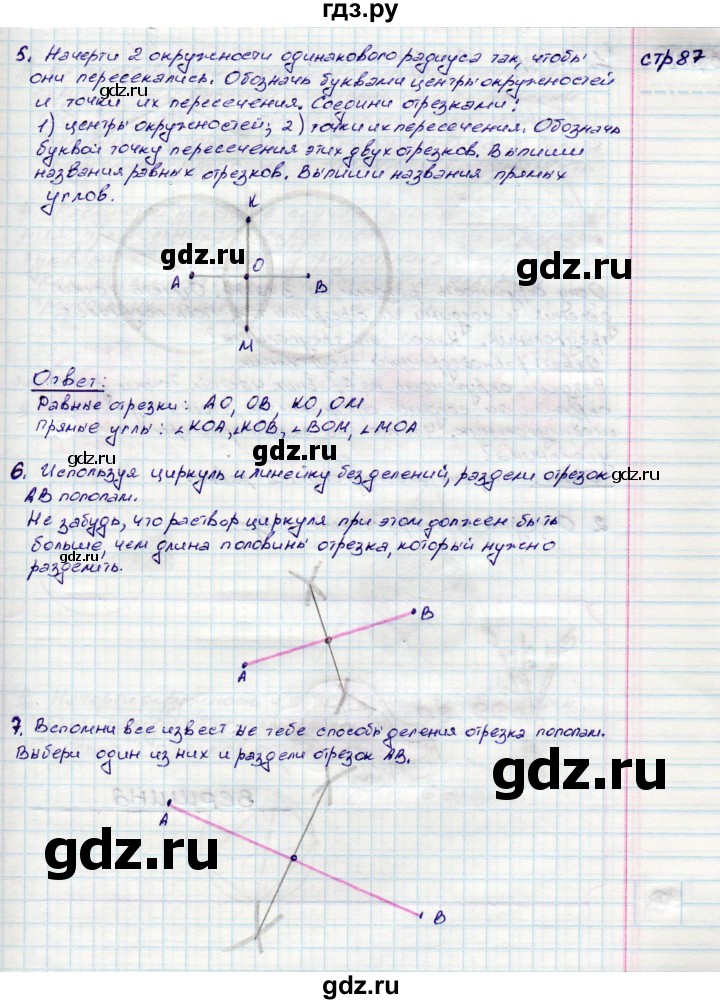 гдз.ру
стр 87
5. Начерти 2 окружности одинакового радиуса так, чтобы
они пересекались. Обозначь буквами центры окружностей
и точки их пересечения. Соедини отрезками:
1) центры окружностей; 2) точки их пересечения. Обозначь
буквой точку пересечения этих двух отрезков. Выпиши
названия равных отрезков. Выпиши названия прямых
углов.
К
gdz.ru
gdz.ru
А
О
В
М
Ответ:
Равные отрезки: АО, ОВ, КО, ОМ
Прямые углы: ∠КОА, ∠КОВ, ∠ВОМ, ∠МОА
gdz.ru
6. Используя циркуль и линейку без делений, раздели отрезок
АВ пополам.
Не забудь, что раствор циркуля при этом должен быть
больше, чем длина половины отрезка, который нужно
разделить.
gdz.ru
gdz.ru
В
А
7. Вспомни все извест ые тебе способы деления отрезка пополам.
Выбери один из них и раздели отрезок АВ.
gdz.ru
А
gdz.ru
В
gdz.ru
gdz.ru